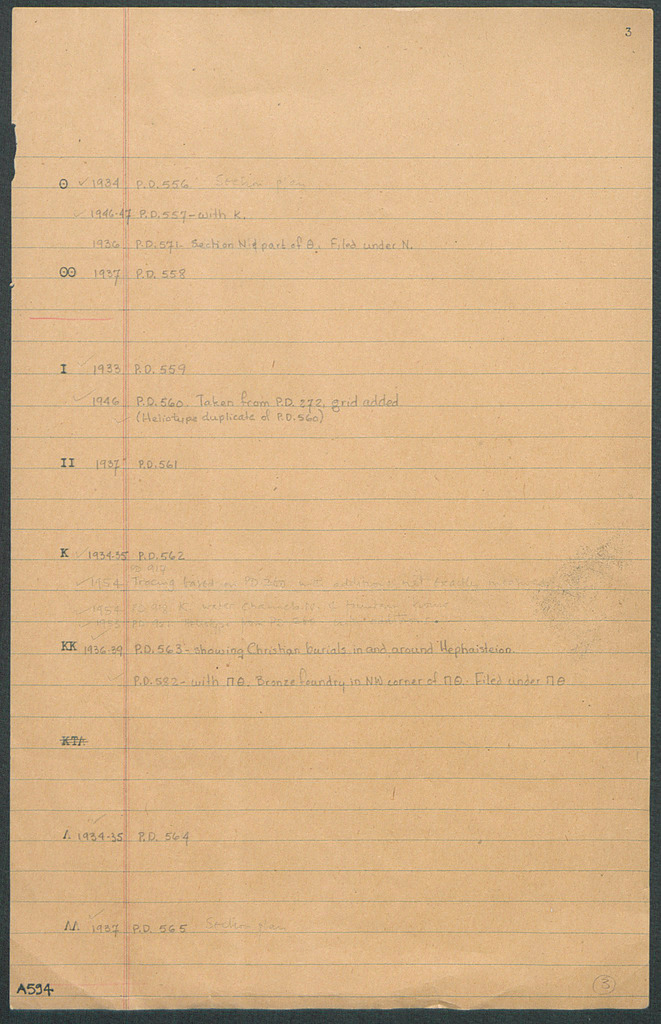 3
Θ ✓ 1934 P.D. 556 Section plan
✓ 1946-47 P.D. 557 - with K.
1936 P.D. 571 - Section N & part of Θ. Filed under N.
ΘΘ 1937 P.D. 558
I 1933 P.D. 559
1946 P.D. 560. Taken from P.D. 272, grid added
(Heliotype duplicate of P.D. 560)
II 1937 P.D. 561
K ✓ 1934-35 P.D. 562
✓ 1954 Tracing based on PD
✓ 1954 K water channels
✓ 1953
KK 1936-39 P.D. 563 - showing Christian burials in and around Hephaisteion.
P.D. 582 - with ΠΘ. Bronze foundry in NW corner of ΠΘ. Filed under ΠΘ
KTΛ
Λ 1934-35 P.D. 564
ΛΛ 1937 P.D. 565 Section plan
A594
3